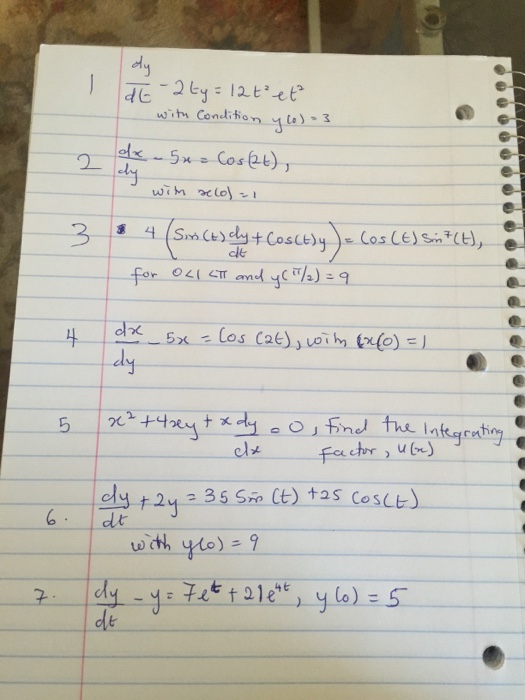 1 dy/dt - 2ty = 12t² et²
with Condition y(0) = 3
2 dx/dy - 5x = Cos(2t),
with x(0) = 1
3 4 (Sin(t) dy/dt + Cos(t)y) = Cos(t) Sin⁷(t),
for 0<1<π and y(π/2) = 9
4 dx/dy - 5x = Cos (2t), with x(0) = 1
5 x² + 4xy + x dy/dx = 0, Find the Integrating
factor, u(x)
6. dy/dt + 2y = 35 Sin (t) + 25 Cos(t)
with y(0) = 9
7. dy/dt - y = 7eᵗ + 21e⁴ᵗ, y(0) = 5